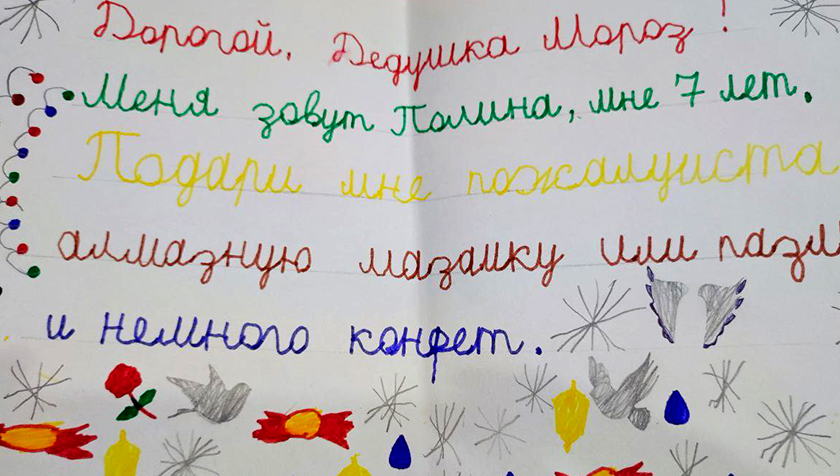 Дорогой, Дедушка Мороз!
Меня зовут Полина, мне 7 лет.
Подари мне пожалуиста
алмазную мазаику или пазл
и немного конфет.